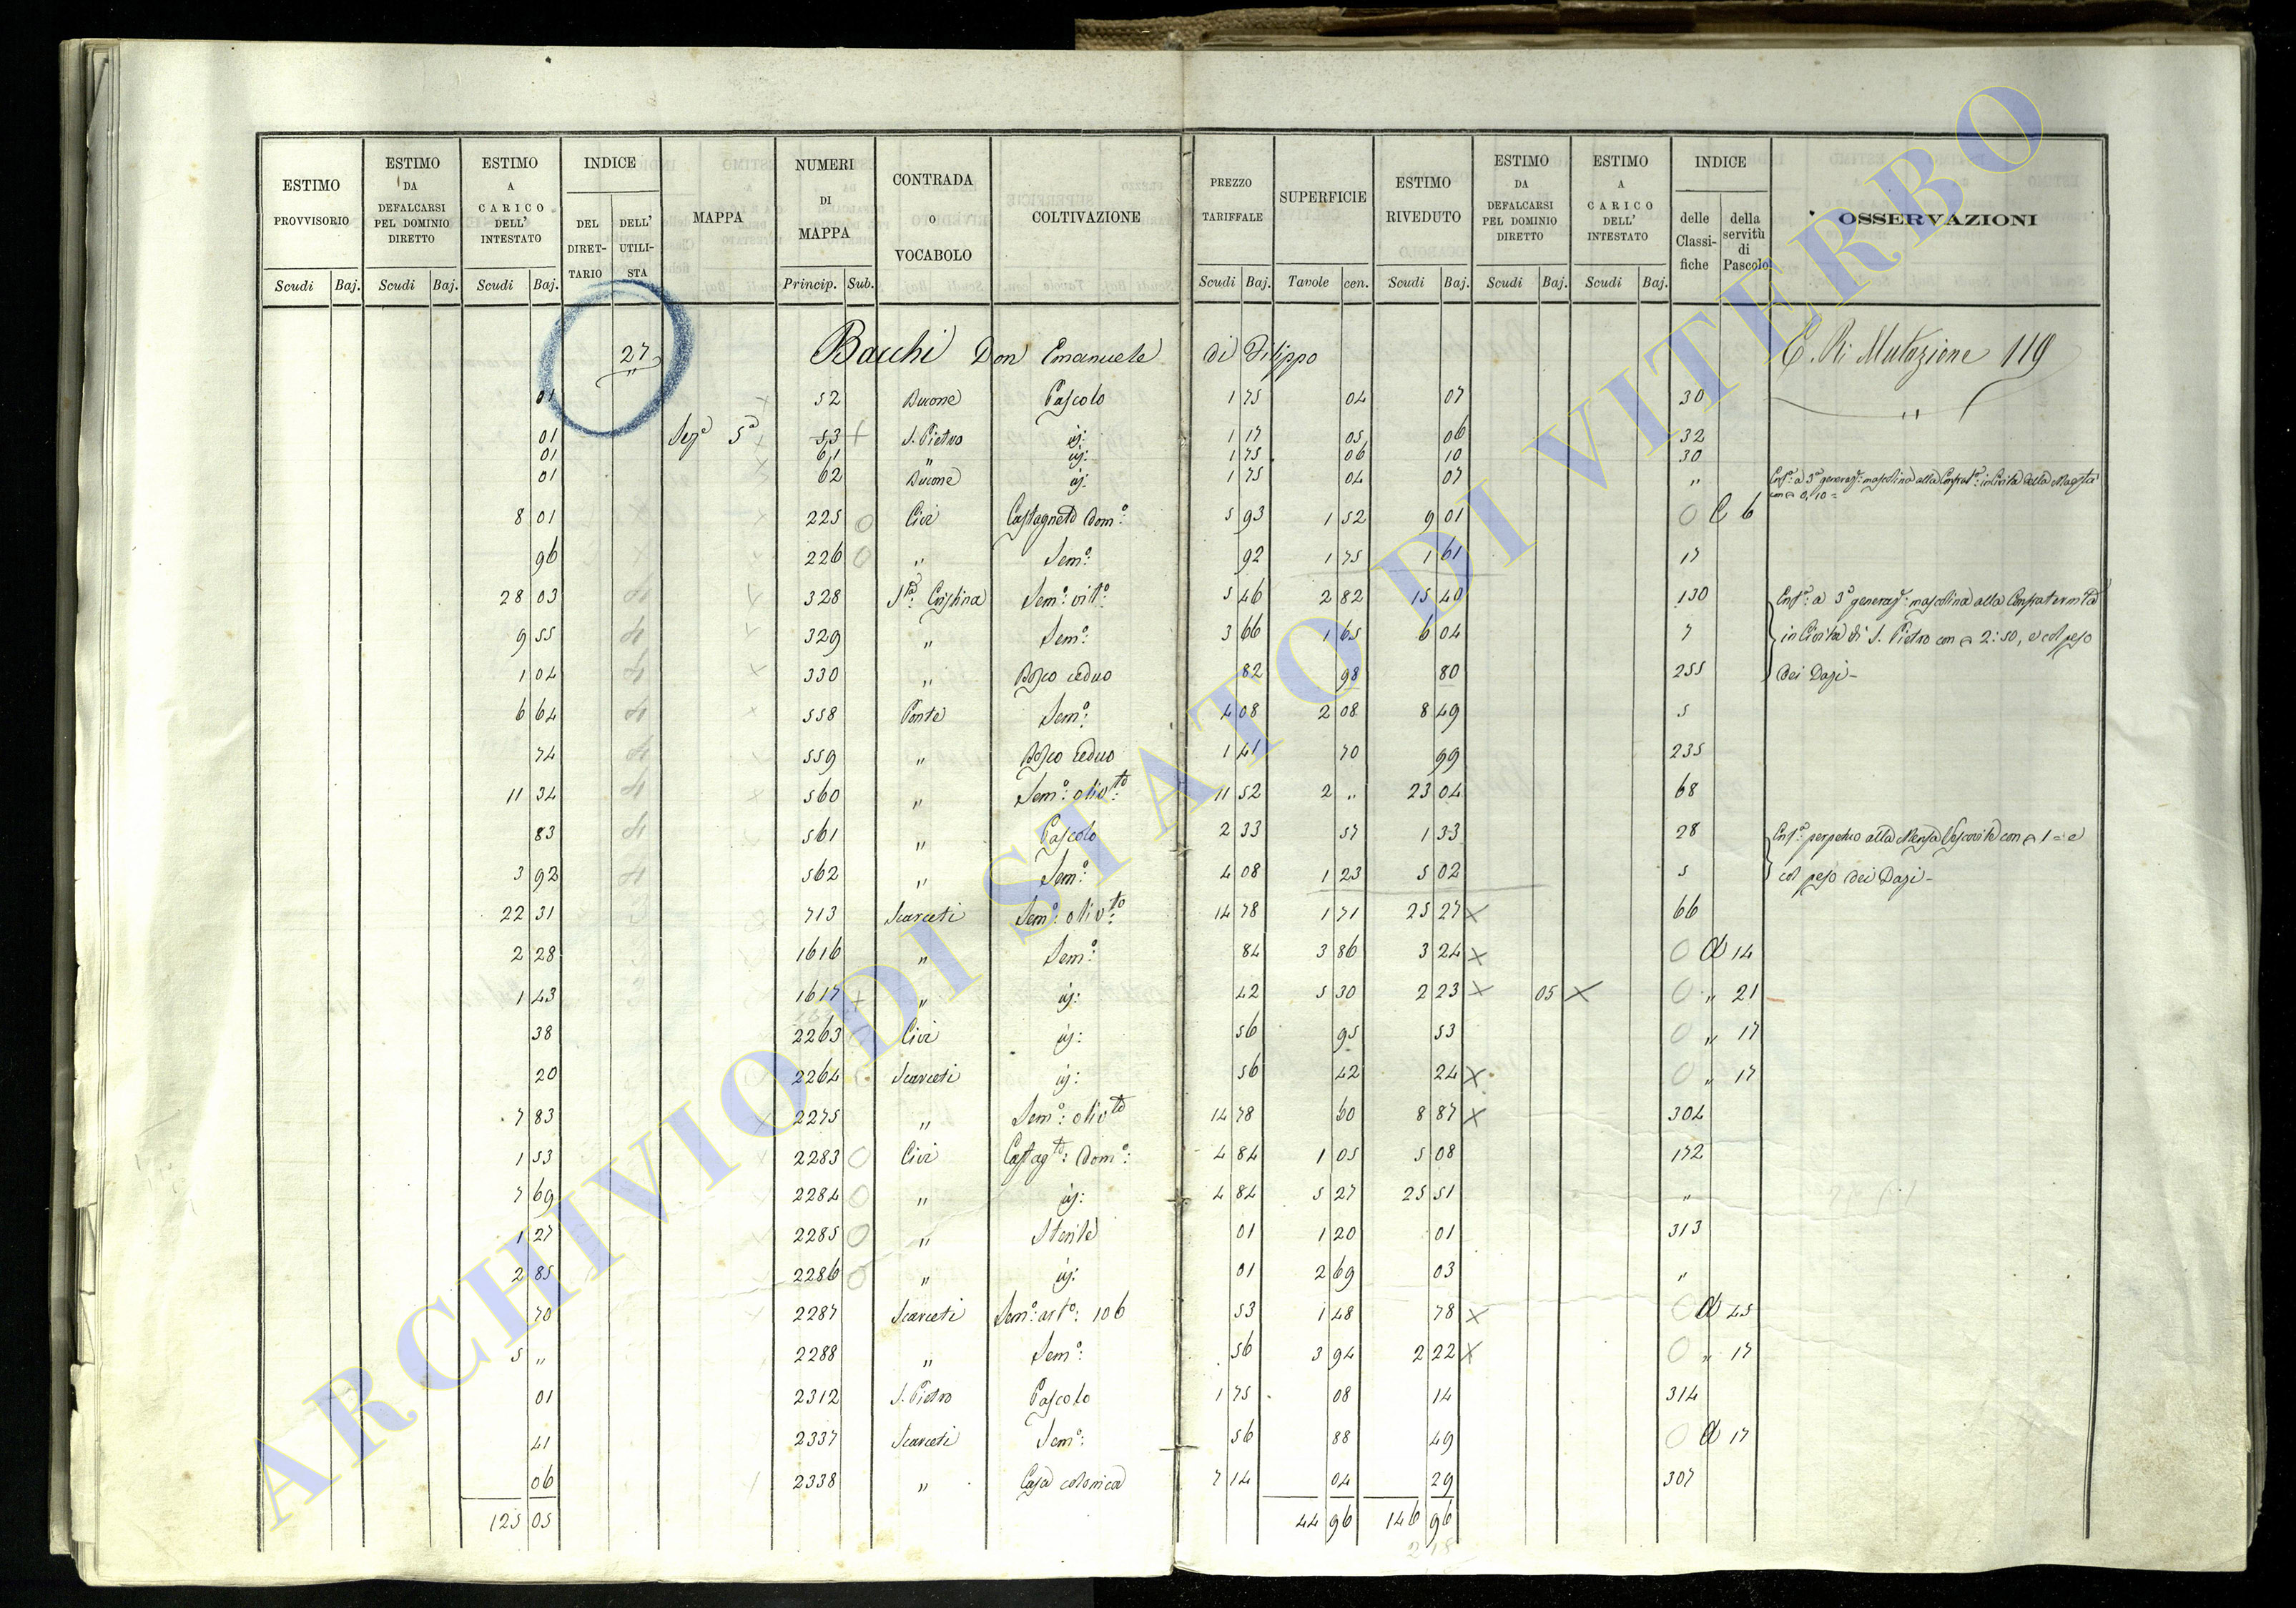 ESTIMO PROVVISORIO Scudi Baj. ESTIMO DA DEFALCARSI PEL DOMINIO DIRETTO Scudi Baj. ESTIMO A CARICO DELL' INTESTATO Scudi Baj. INDICE DEL DIRET-TARIO DELL' UTILI-STA MAPPA NUMERI DI MAPPA Princip. Sub. CONTRADA O VOCABOLO COLTIVAZIONE PREZZO TARIFFALE Scudi Baj. SUPERFICIE Tavole cen. ESTIMO RIVEDUTO Scudi Baj. ESTIMO DA DEFALCARSI PEL DOMINIO DIRETTO Scudi Baj. ESTIMO A CARICO DELL' INTESTATO Scudi Baj. INDICE delle Classi-fiche della servitù di Pascolo OSSERVAZIONI
27 Bacchi Don Emanuele di Filippo Mutazione 119
01 52 Pascolo 1 75 04 07 30
01 Sez.e 5a 53 S. Pietro id: 1 17 05 06 32
01 61 " id: 1 75 06 10 30
01 62 id: 1 75 04 07 " Enf.a a 3a generaz.e mascolina alla Confrat.a in Civita della
8 01 225 Civi Castagneto dom.o 5 93 1 52 9 01 0 C 6
96 226 " Sem.o 92 1 75 1 61 17
28 03 328 S.ta Cristina Sem.o vit.o 5 46 2 82 15 40 130 Enf.a a 3a generaz.e mascolina alla Confraternita
9 55 329 " Sem.o 3 66 1 65 6 04 7 in Civita di S. Pietro con 2:50, e col peso
1 04 330 " Bosco ceduo 82 98 80 255 dei Dazi -
6 64 558 Ponte Sem.o 4 08 2 08 8 49 5
74 559 " Bosco ceduo 1 41 70 99 235
11 34 560 " Sem.o oliv.to 11 52 2 " 23 04 68
83 561 " Pascolo 2 33 57 1 33 28 Enf.a perpetuo alla Mensa Vescovile con 1 = e
3 92 562 " Sem.o 4 08 1 23 5 02 5 col peso dei Dazi -
22 31 713 Scarceti Sem.o oliv.to 14 78 1 71 25 27 x 66
2 28 1616 " Sem.o 84 3 86 3 24 x 0 A 14
1 43 1617 + " id: 42 5 30 2 23 x 05 x 0 " 21
38 2263 Civi id: 56 95 53 0 " 17
20 2264 Scarceti id: 56 42 24 x 0 " 17
7 83 2275 " Sem.o oliv.to 14 78 60 8 87 x 304
1 53 2283 0 Civi Castag.to dom.o 4 84 1 05 5 08 172
7 69 2284 0 " id: 4 84 5 27 25 51 "
1 27 2285 0 " Sterile 01 1 20 01 313
2 85 2286 0 " id: 01 2 69 03 "
70 2287 Scarceti 106 53 1 48 78 x 0 A 45
5 " 2288 " Sem.o 56 3 94 2 22 x 0 " 17
01 2312 S. Pietro Pascolo 1 75 08 14 314
41 2337 Scarceti Sem.o 56 88 49 0 A 17
06 2338 " Casa colonica 7 14 04 29 307
125 05 44 96 146 96
ARCHIVIO DI STATO DI VITERBO